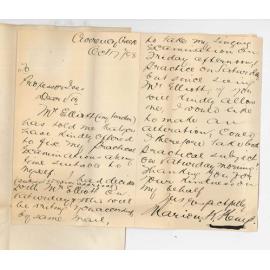 Crossover Creek
Oct 17/98
To
Professor Ives
Dear Sir
Mr Elliott (my teacher)
has told me that you
have kindly offered
to give my practical
examination at any
time suitable to
myself. I had decided
with Mr Elliott on
Saturday &
be writing
by same mail,
to take my singing
examination on
Friday afternoon,
Practice on Saturday
but since seeing
Mr Elliott, if you
will kindly allow
me, I would like
to make an
alteration, Could
I therefore take both
practical subjects
on Saturday morning
Thanking you for
your kindness on
my behalf
Yours respectfully
Marion